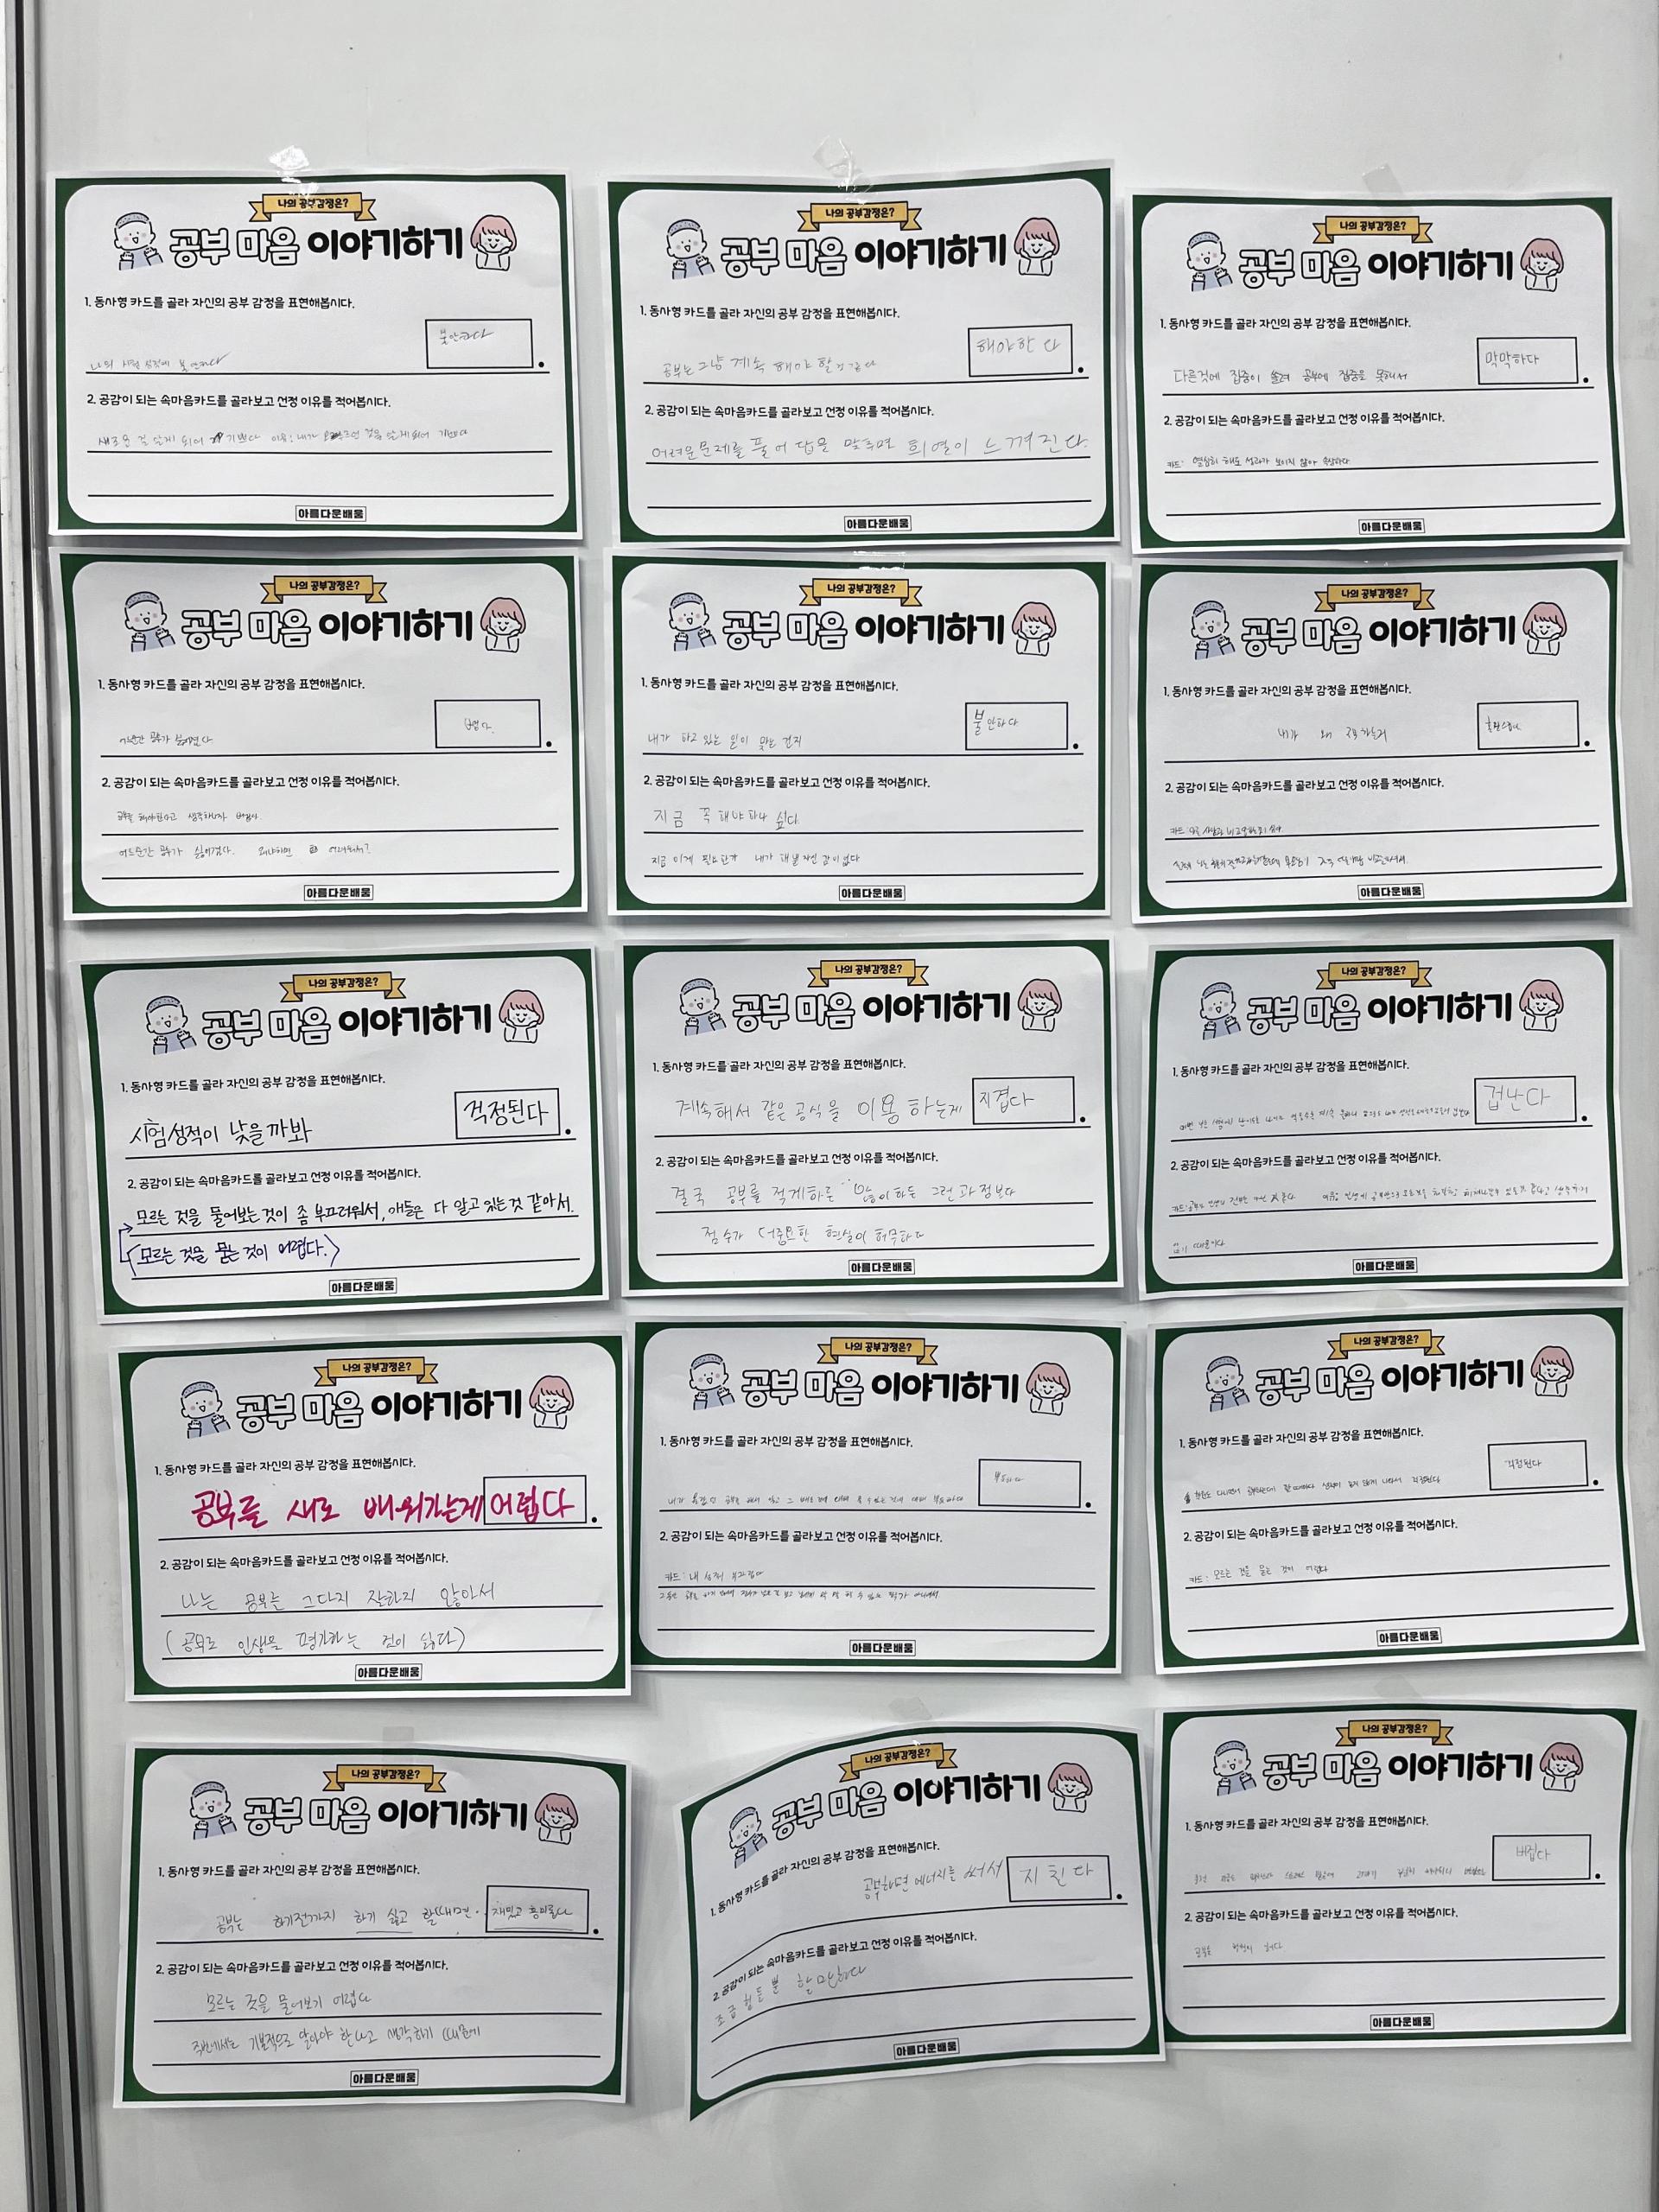 나의 공부감정은?
공부 마음 이야기하기
1. 동사형 카드를 골라 자신의 공부 감정을 표현해봅시다.
불안하다
나의 시험 성적에 불안하다
2. 공감이 되는 속마음카드를 골라보고 선정 이유를 적어봅시다.
새로운 걸 알게 되어 기쁘다 이유: 내가 것을 알게되어 기쁘다
아름다운배움
나의 공부감정은?
공부 마음 이야기하기
1. 동사형 카드를 골라 자신의 공부 감정을 표현해봅시다.
해야한다
공부는 그냥 계속 해야 할
2. 공감이 되는 속마음카드를 골라보고 선정 이유를 적어봅시다.
어려운문제를 풀어 답을 맞추면 희열이 느껴진다.
아름다운배움
나의 공부감정은?
공부 마음 이야기하기
1. 동사형 카드를 골라 자신의 공부 감정을 표현해봅시다.
막막하다
다른것에 집중이 쏠려 공부에 집중을 못해서
2. 공감이 되는 속마음카드를 골라보고 선정 이유를 적어봅시다.
카드: 열심히 해도 성과가 보이지 않아 속상하다
아름다운배움
나의 공부감정은?
공부 마음 이야기하기
1. 동사형 카드를 골라 자신의 공부 감정을 표현해봅시다.
어느순간 공부가
2. 공감이 되는 속마음카드를 골라보고 선정 이유를 적어봅시다.
공부를 해야한다고
어느순간 공부가 싫어졌다. 왜냐하면 어려워서?
아름다운배움
나의 공부감정은?
공부 마음 이야기하기
1. 동사형 카드를 골라 자신의 공부 감정을 표현해봅시다.
불안하다
내가 하고 있는 일이 맞는 건지
2. 공감이 되는 속마음카드를 골라보고 선정 이유를 적어봅시다.
지금 꼭 해야하나 싶다.
지금 이게 필요한가 내가 해낼 자신감이없다
아름다운배움
나의 공부감정은?
공부 마음 이야기하기
1. 동사형 카드를 골라 자신의 공부 감정을 표현해봅시다.
혼란스럽다
내가 왜
2. 공감이 되는 속마음카드를 골라보고 선정 이유를 적어봅시다.
카드:
아름다운배움
나의 공부감정은?
공부 마음 이야기하기
1. 동사형 카드를 골라 자신의 공부 감정을 표현해봅시다.
시험성적이 낮을까봐 걱정된다
2. 공감이 되는 속마음카드를 골라보고 선정 이유를 적어봅시다.
모르는 것을 물어보는것이 좀 부끄러워서, 애들은 다 알고있는것 같아서.
(모르는 것을 묻는 것이 어렵다.)
아름다운배움
나의 공부감정은?
공부 마음 이야기하기
1. 동사형 카드를 골라 자신의 공부 감정을 표현해봅시다.
계속해서 같은 공식을 이용하는게 지겹다
2. 공감이 되는 속마음카드를 골라보고 선정 이유를 적어봅시다.
결국 공부를 적게하든 많이하든 그런 과정보다
점수가 더중요한 현실이 허무하다
아름다운배움
나의 공부감정은?
공부 마음 이야기하기
1. 동사형 카드를 골라 자신의 공부 감정을 표현해봅시다.
겁난다
2. 공감이 되는 속마음카드를 골라보고 선정 이유를 적어봅시다.
때문이다
아름다운배움
나의 공부감정은?
공부 마음 이야기하기
1. 동사형 카드를 골라 자신의 공부 감정을 표현해봅시다.
공부를 새로 배워가는게 어렵다
2. 공감이 되는 속마음카드를 골라보고 선정 이유를 적어봅시다.
나는 공부를 그다지 잘하지 않아서
(공부로 인생을 평가하는 것이 싫다)
아름다운배움
나의 공부감정은?
공부 마음 이야기하기
1. 동사형 카드를 골라 자신의 공부 감정을 표현해봅시다.
2. 공감이 되는 속마음카드를 골라보고 선정 이유를 적어봅시다.
카드: 내
아름다운배움
나의 공부감정은?
공부 마음 이야기하기
1. 동사형 카드를 골라 자신의 공부 감정을 표현해봅시다.
걱정된다
걱정된다
2. 공감이 되는 속마음카드를 골라보고 선정 이유를 적어봅시다.
카드: 모르는 것을 묻는 것이 어렵다
아름다운배움
나의 공부감정은?
공부 마음 이야기하기
1. 동사형 카드를 골라 자신의 공부 감정을 표현해봅시다.
공부는 하기전까지 하기 싫고 할때면 재밌고 흥미롭다
2. 공감이 되는 속마음카드를 골라보고 선정 이유를 적어봅시다.
모르는 것을 물어보기 어렵다
주변에서는 기본적으로 알아야 한다고 생각하기 때문에
아름다운배움
나의 공부감정은?
공부 마음 이야기하기
1. 동사형 카드를 골라 자신의 공부 감정을 표현해봅시다.
공부하면 에너지를 써서 지친다
2. 공감이 되는 속마음카드를 골라보고 선정 이유를 적어봅시다.
조금 힘들 뿐 할만하다
아름다운배움
나의 공부감정은?
공부 마음 이야기하기
1. 동사형 카드를 골라 자신의 공부 감정을 표현해봅시다.
버겁다
2. 공감이 되는 속마음카드를 골라보고 선정 이유를 적어봅시다.
아름다운배움